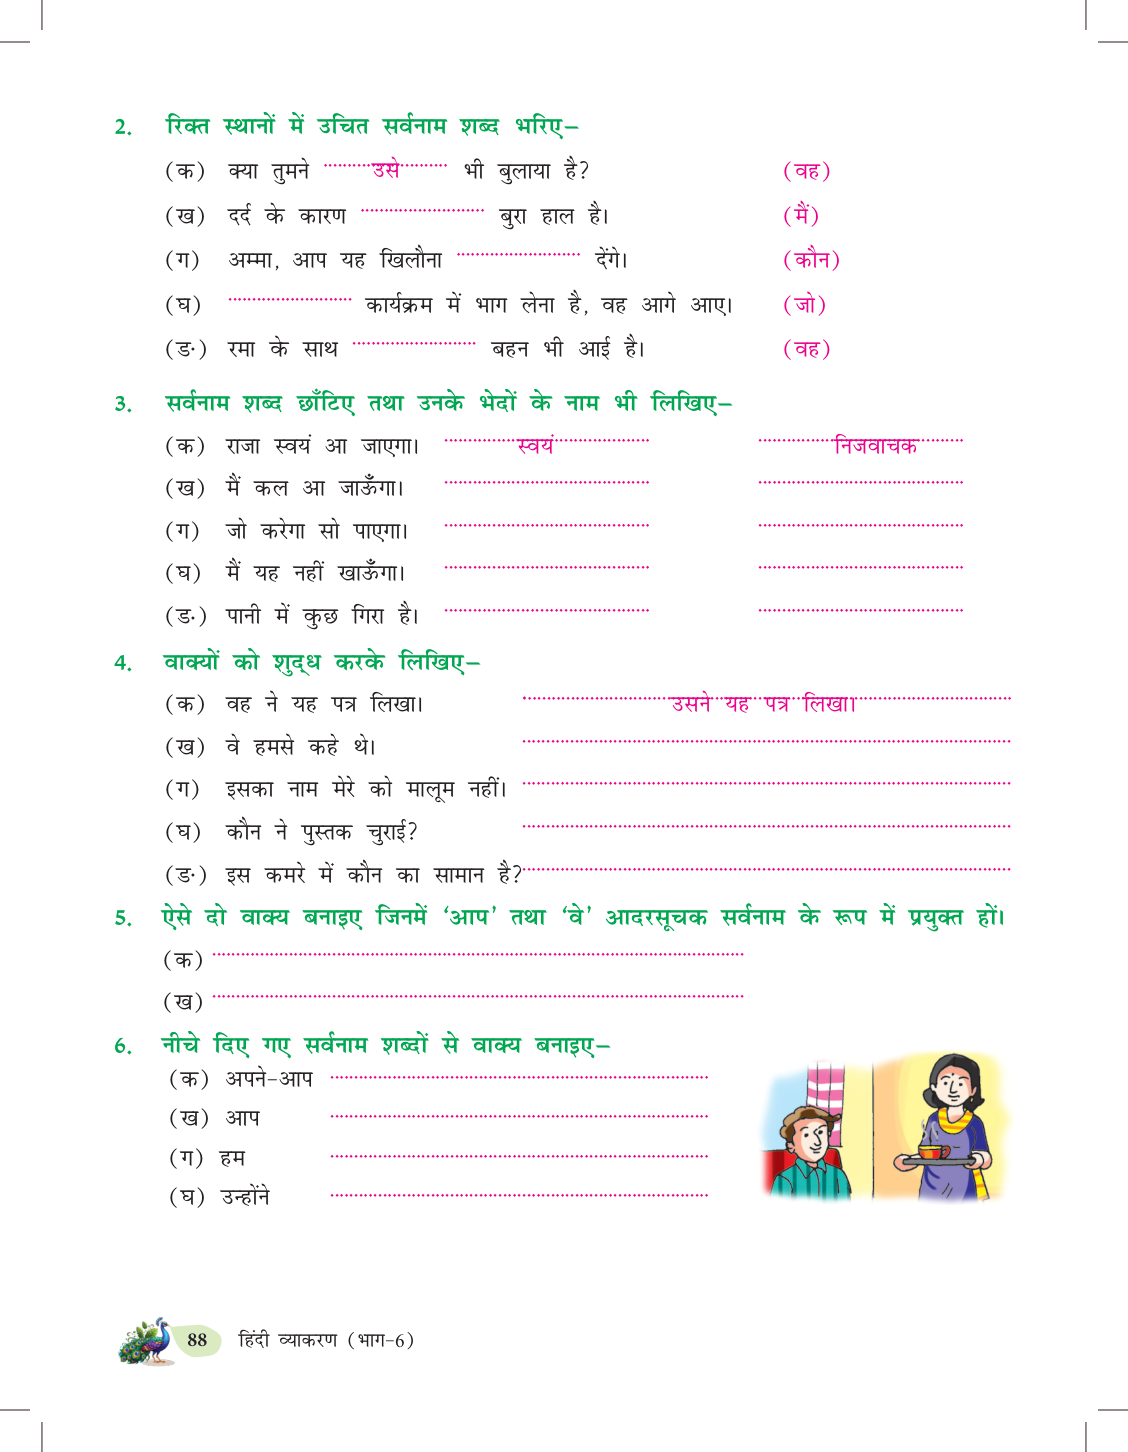 2. रिक्त स्थानों में उचित सर्वनाम शब्द भरिए–
(क) क्या तुमने ..........उसे.......... भी बुलाया है? (वह)
(ख) दर्द के कारण .......................... बुरा हाल है। (मैं)
(ग) अम्मा, आप यह खिलौना .......................... देंगे। (कौन)
(घ) .......................... कार्यक्रम में भाग लेना है, वह आगे आए। (जो)
(ङ) रमा के साथ .......................... बहन भी आई है। (वह)
3. सर्वनाम शब्द छाँटिए तथा उनके भेदों के नाम भी लिखिए–
(क) राजा स्वयं आ जाएगा। ...............स्वयं.................... ...............निजवाचक..........
(ख) मैं कल आ जाऊँगा। ........................................... ...........................................
(ग) जो करेगा सो पाएगा। ........................................... ...........................................
(घ) मैं यह नहीं खाऊँगा। ........................................... ...........................................
(ङ) पानी में कुछ गिरा है। ........................................... ...........................................
4. वाक्यों को शुद्ध करके लिखिए–
(क) वह ने यह पत्र लिखा। ...............................उसने यह पत्र लिखा।................................
(ख) वे हमसे कहे थे। ......................................................................................
(ग) इसका नाम मेरे को मालूम नहीं। ......................................................................................
(घ) कौन ने पुस्तक चुराई? ......................................................................................
(ङ) इस कमरे में कौन का सामान है? ......................................................................................
5. ऐसे दो वाक्य बनाइए जिनमें ‘आप’ तथा ‘वे’ आदरसूचक सर्वनाम के रूप में प्रयुक्त हों।
(क) ..............................................................................................
(ख) ..............................................................................................
6. नीचे दिए गए सर्वनाम शब्दों से वाक्य बनाइए–
(क) अपने-आप ...............................................................................
(ख) आप ...............................................................................
(ग) हम ...............................................................................
(घ) उन्होंने ...............................................................................
88 हिंदी व्याकरण (भाग-6)